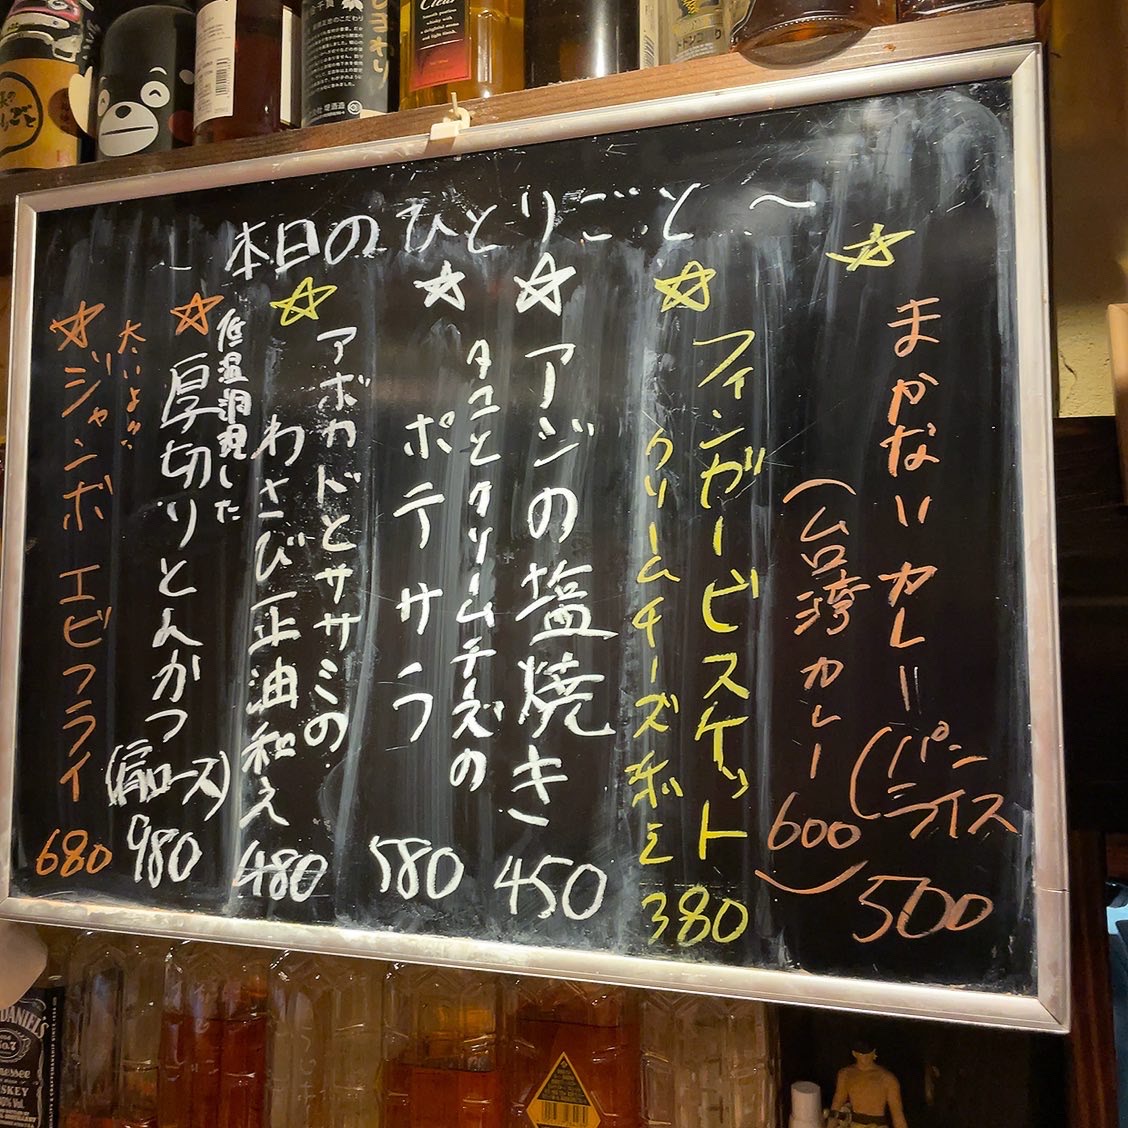 本日のひとりごと〜
☆
まかないカレー
(パン
ライス
500
(台湾カレー
600)
☆
フィンガービスケット
クリームチーズ添え
380
☆
アジの塩焼き
450
☆
タコとクリームチーズの
ポテサラ
580
☆
アボカドとササミの
わさび正油和え
480
☆
低温調理した
厚切りとんかつ
(肩ロース)
980
太いよ
☆
ジャンボエビフライ
680
DANIEL'S